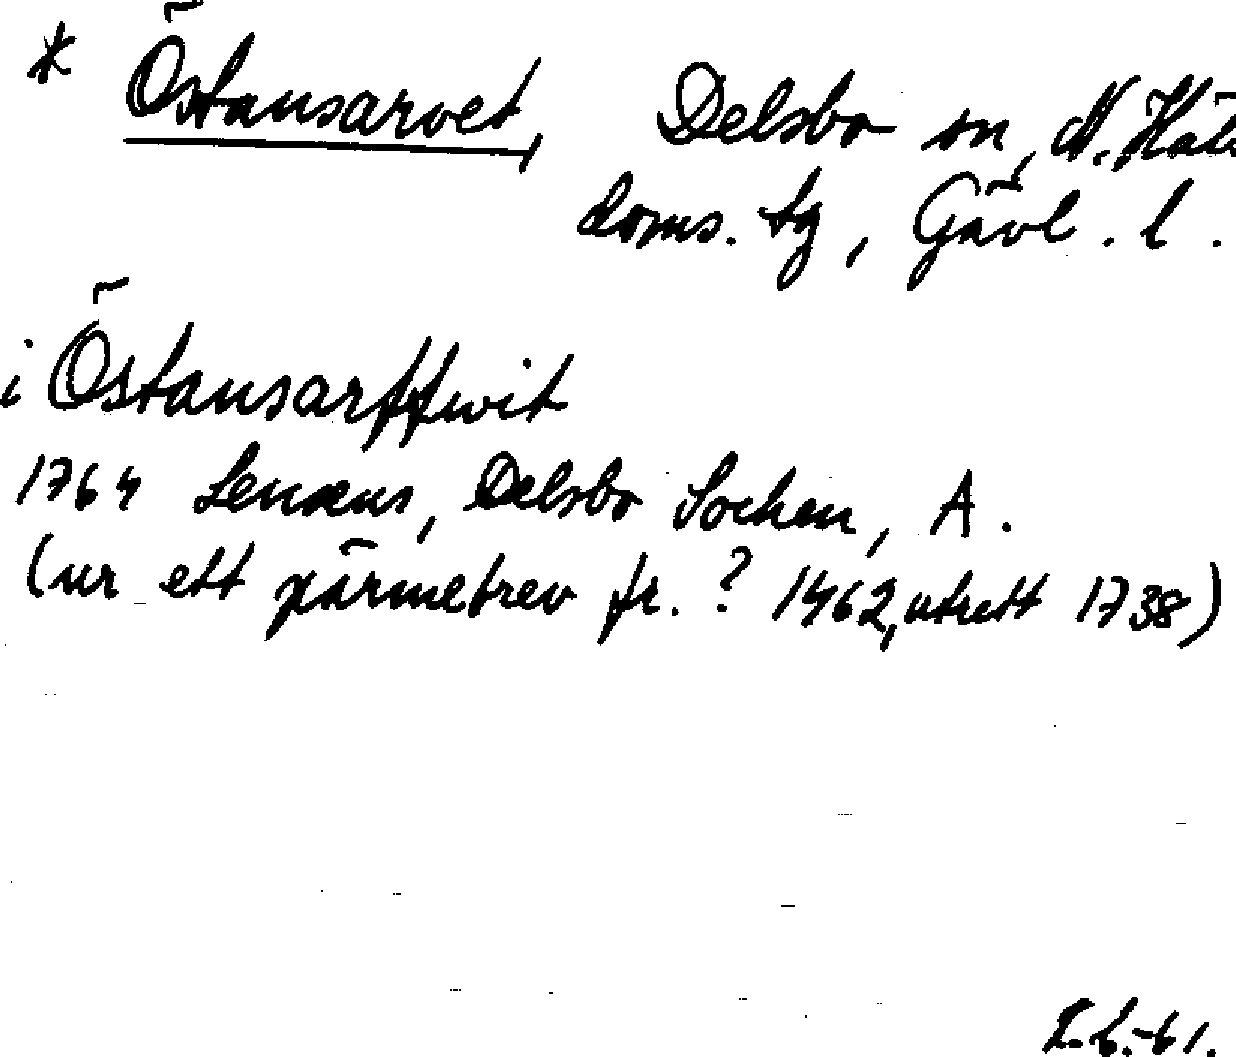 * Östansarvet, Delsbo sn, N. Häls
doms. tg, Gävl. l.
i Östansarffwit
1764 Lenæus, Delsbo Sochen, A.
(ur ett pärmebrev fr. ? 1462, utrett 1738)